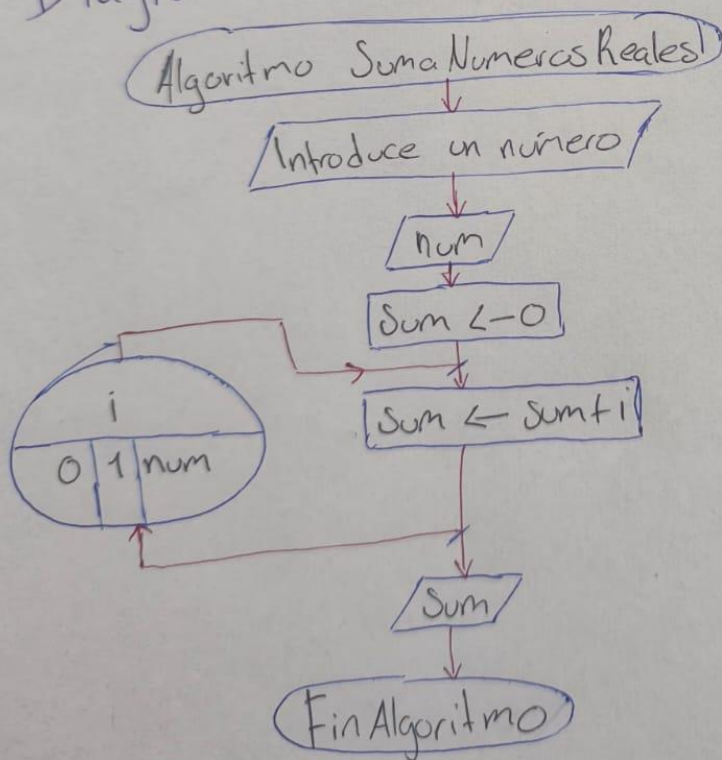 Algoritmo SumaNumerosReales
Introduce un número
num
Sum <-0
Sum <- Sum+i
i
0 1 num
Sum
FinAlgoritmo